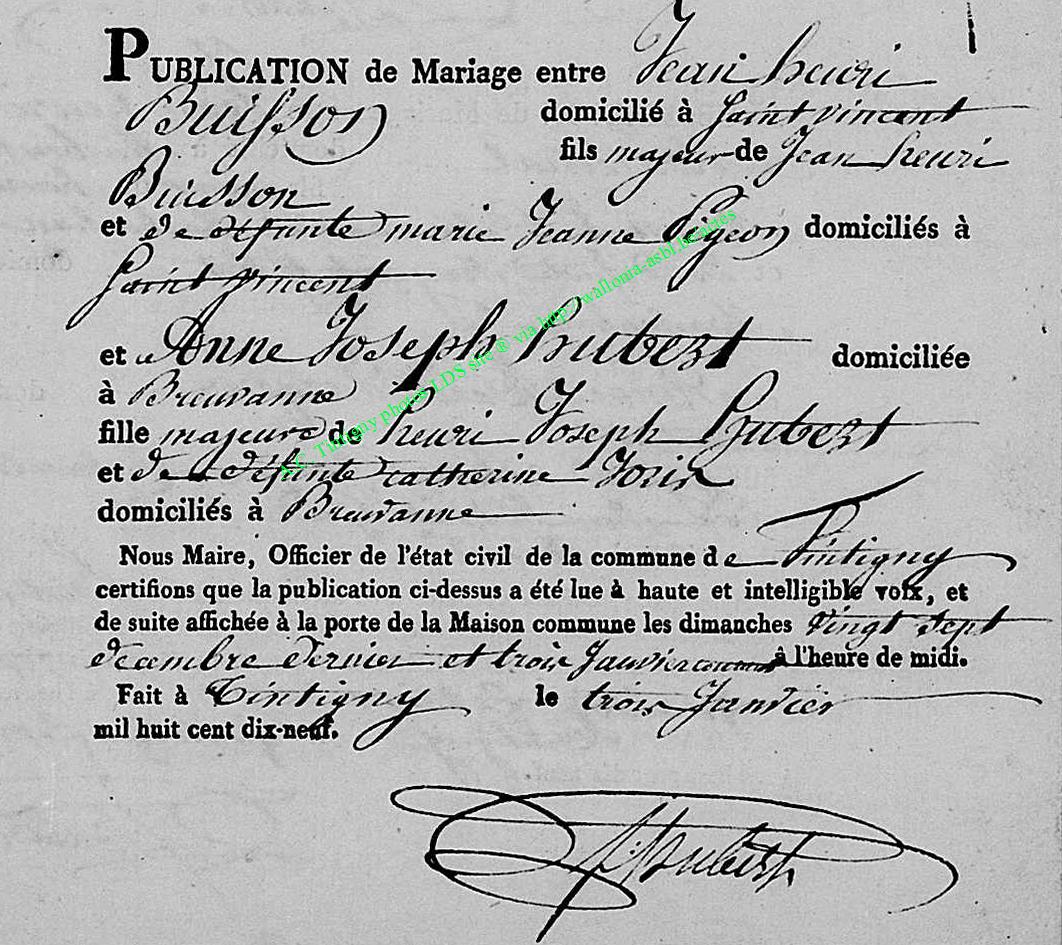 PUBLICATION de Mariage entre Jean henri
Buisson domicilié à Saint vincent
fils majeur de Jean henri
Buisson
et de défunte marie Jeanne Pigeon domiciliés à
Saint vincent
et Anne Joseph hubert domiciliée
à Breuvanne
fille majeure de henri Joseph hubert
et de défunte catherine Joris
domiciliés à Breuvanne
Nous Maire, Officier de l'état civil de la commune de Tintigny
certifions que la publication ci-dessus a été lue à haute et intelligible voix, et
de suite affichée à la porte de la Maison commune les dimanches vingt sept
décembre dernier et trois Janvier courant à l'heure de midi.
Fait à Tintigny le trois Janvier
mil huit cent dix-neuf.
hubert
A.C. Tintigny photos LDS site ® via http://wallonia-asbl.be/actes